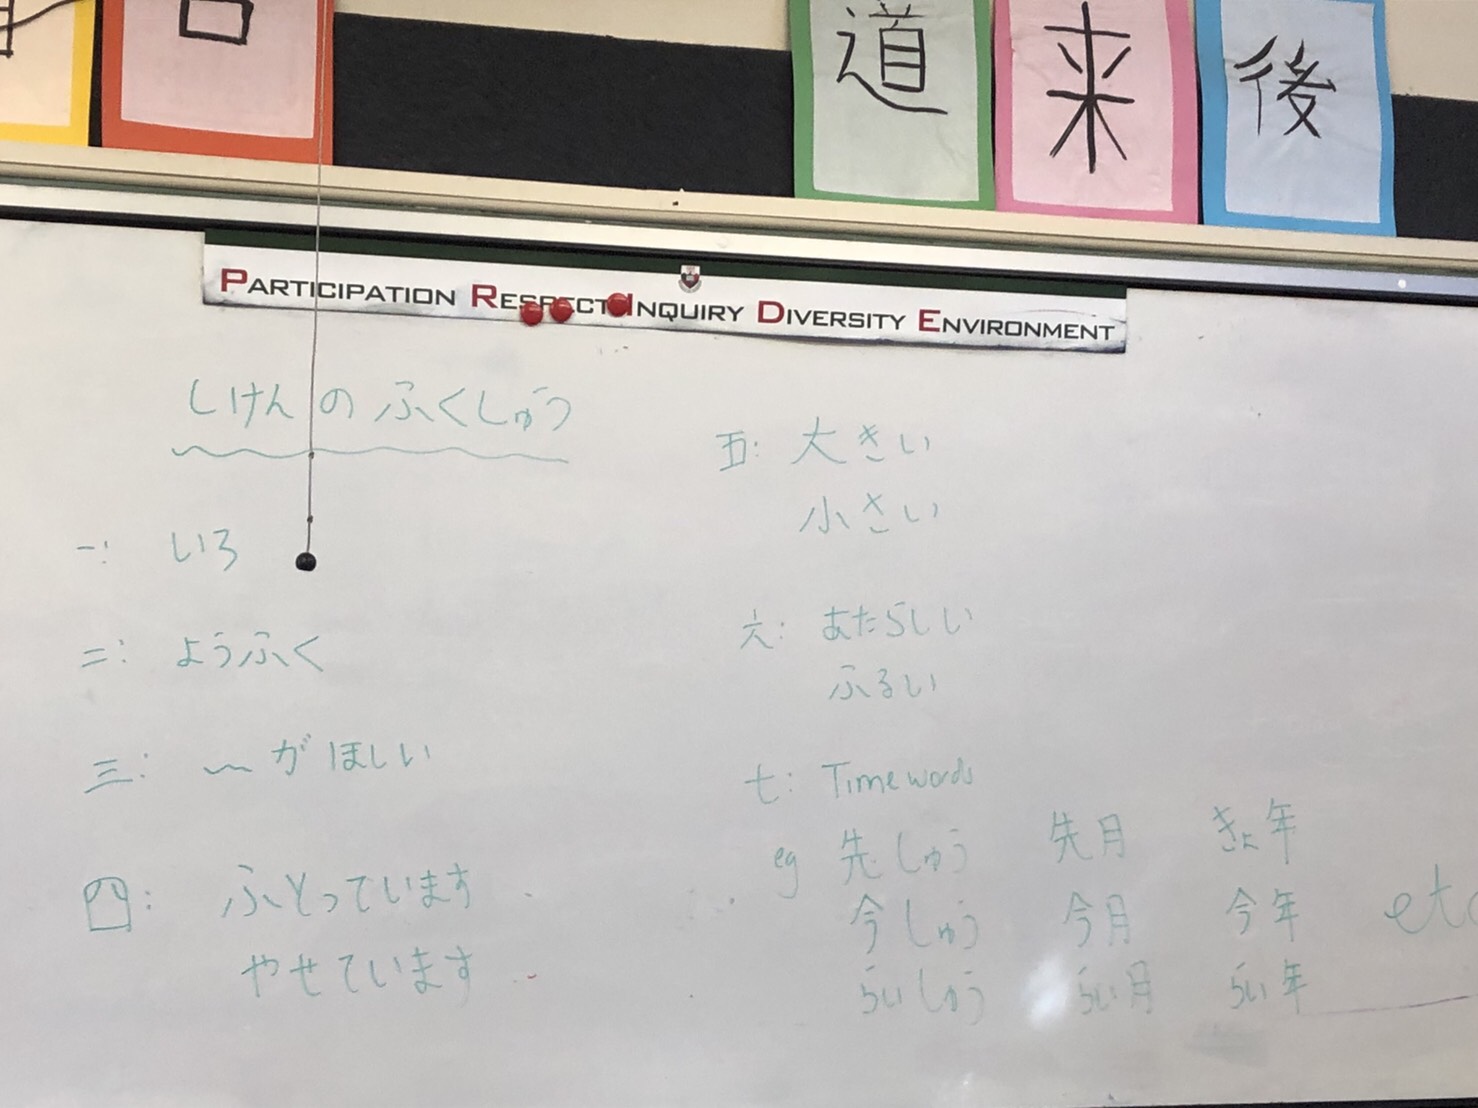 道 来 後
PARTICIPATION RESPECT INQUIRY DIVERSITY ENVIRONMENT
しけんのふくしゅう
一: いろ
二: ようふく
三: 〜がほしい
四: ふとっています
やせています
五: 大きい
小さい
六: あたらしい
ふるい
七: Time words
eg 先しゅう 先月 きょ年
今しゅう 今月 今年 etc
らいしゅう らい月 らい年